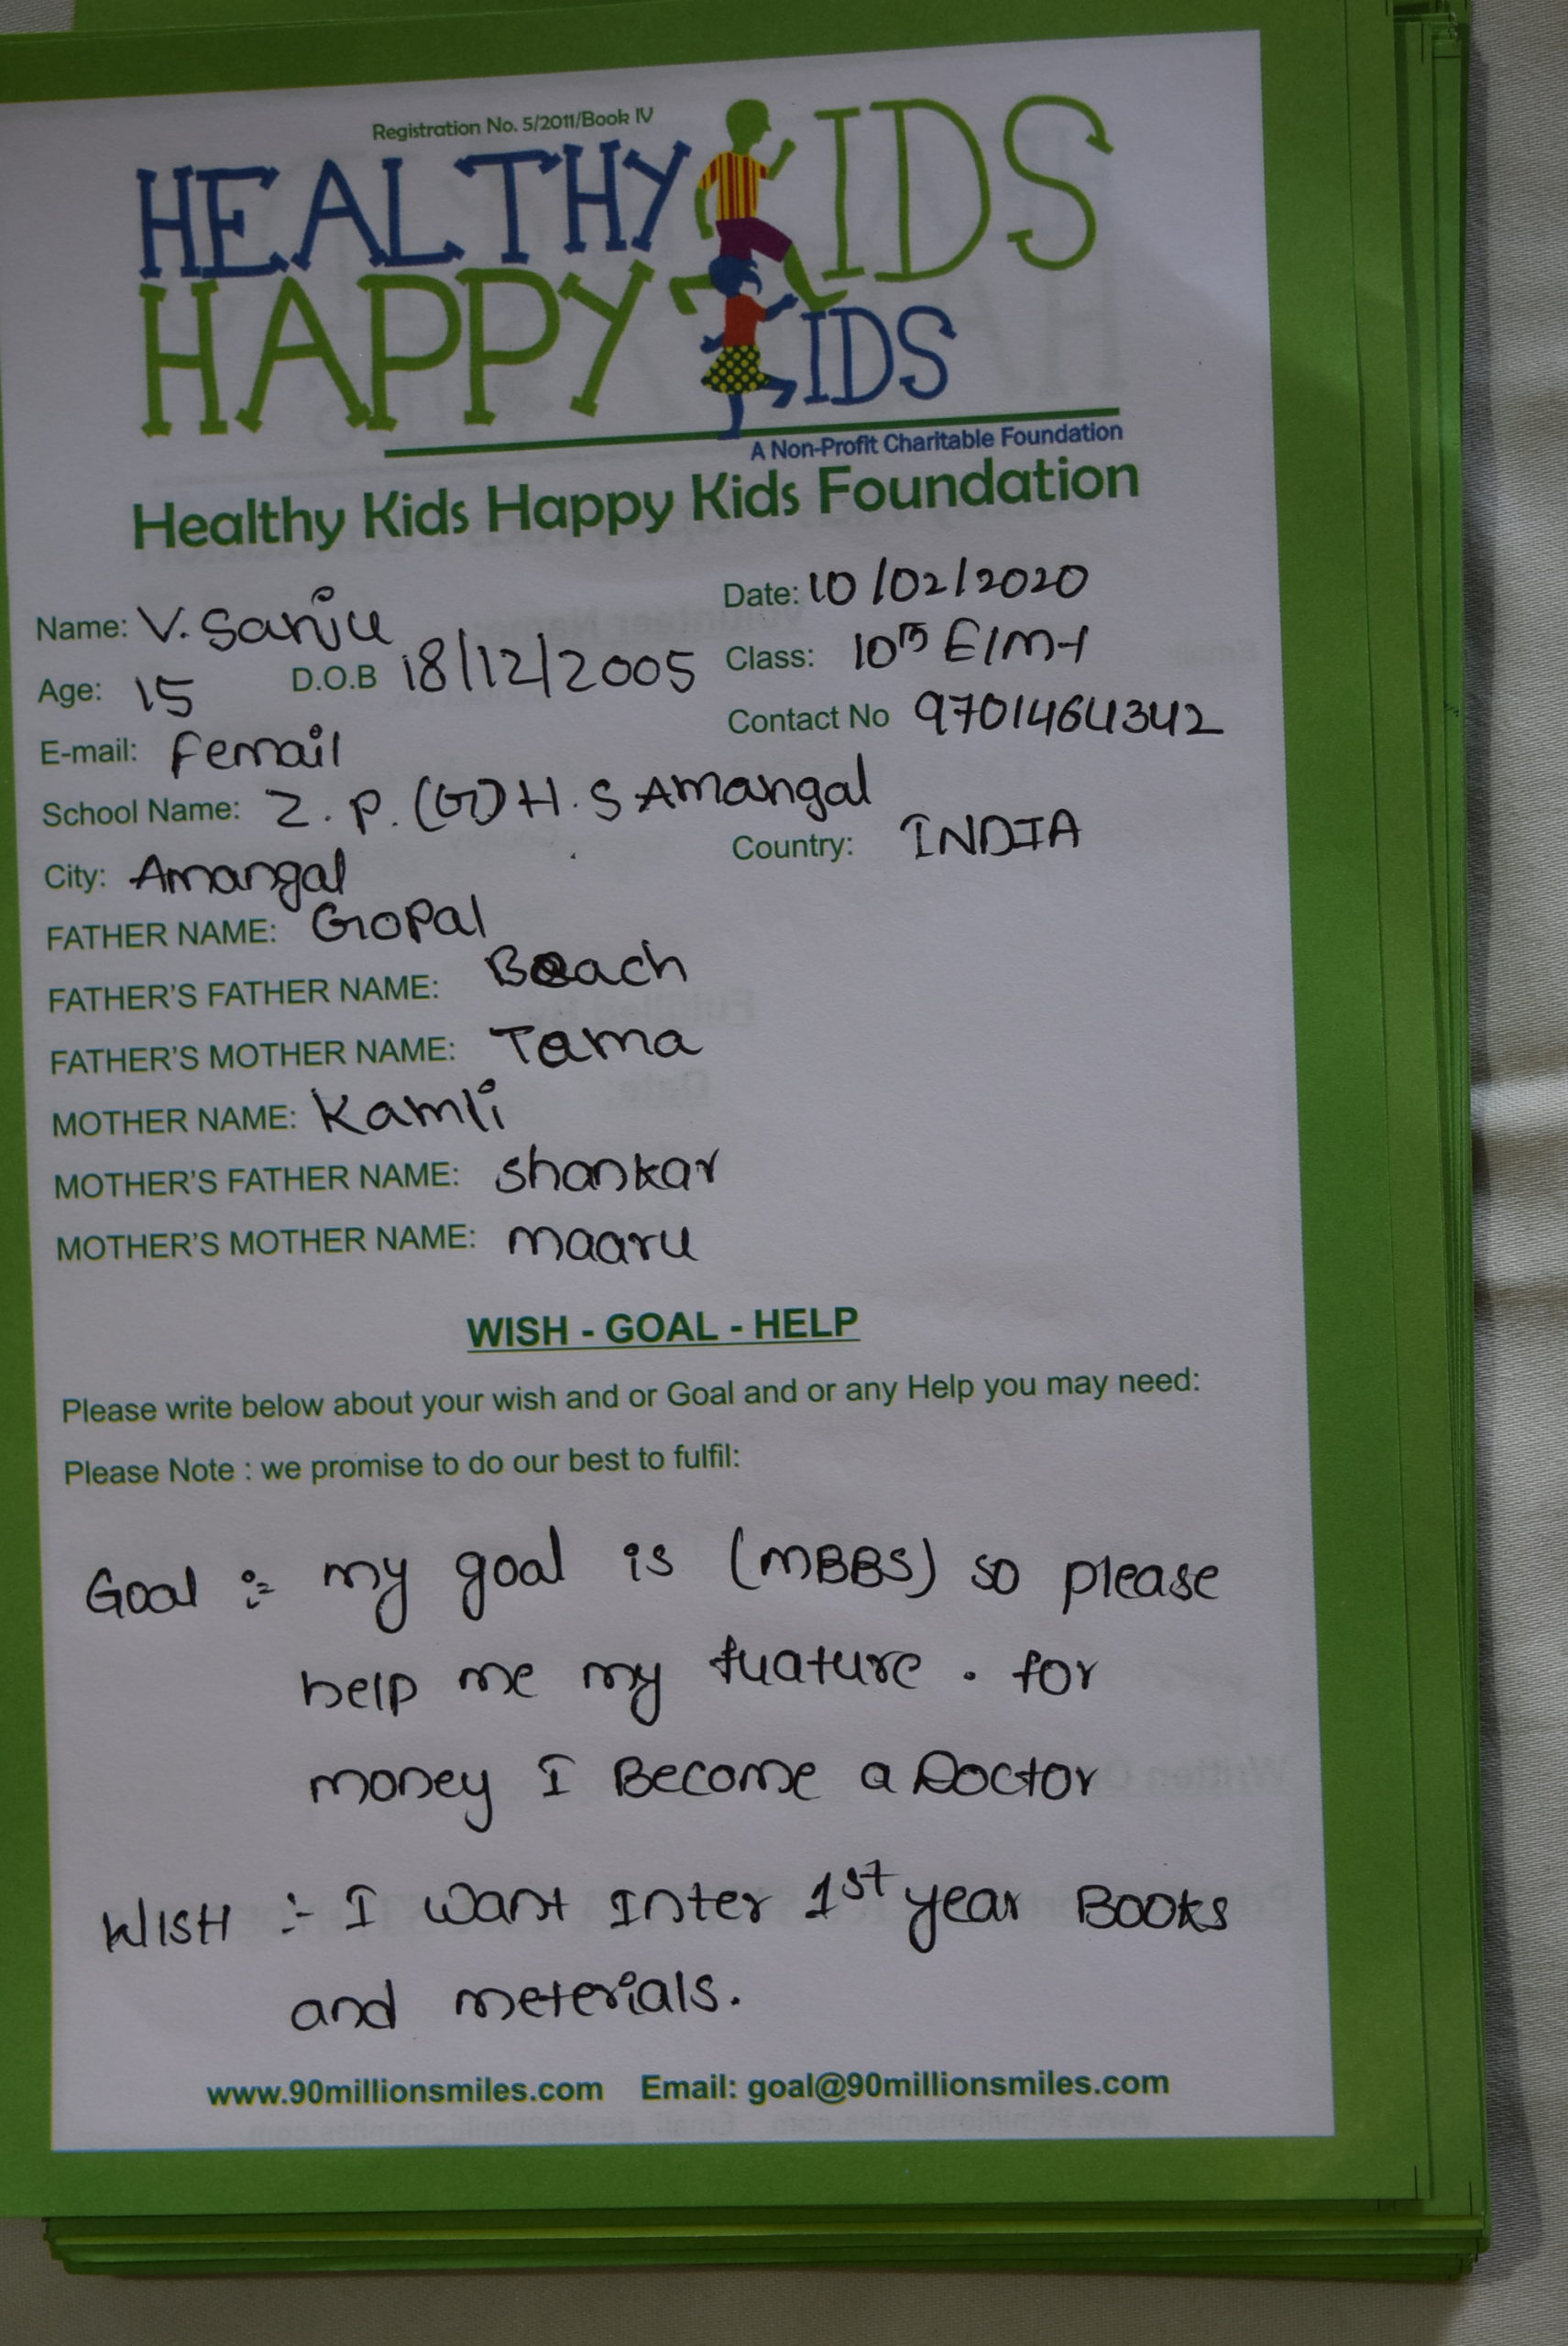 Registration No. 5/2011/Book IV
HEALTHY KIDS
HAPPY KIDS
A Non-Profit Charitable Foundation
Healthy Kids Happy Kids Foundation
Name: V. Sanju Date: 10/02/2020
Age: 15 D.O.B 18/12/2005 Class: 10th E/M-1
E-mail: Femail Contact No 9701464342
School Name: Z. P. (G) H. S Amangal
City: Amangal Country: INDIA
FATHER NAME: Gopal
FATHER'S FATHER NAME:
FATHER'S MOTHER NAME: Tama
MOTHER NAME: Kamli
MOTHER'S FATHER NAME: Shankar
MOTHER'S MOTHER NAME: maaru
WISH - GOAL - HELP
Please write below about your wish and or Goal and or any Help you may need:
Please Note : we promise to do our best to fulfil:
Goal :- my goal is (MBBS) so please
help me my fuature . for
money I Become a Doctor
WISH :- I want Inter 1st year Books
and meterials.
www.90millionsmiles.com Email: goal@90millionsmiles.com